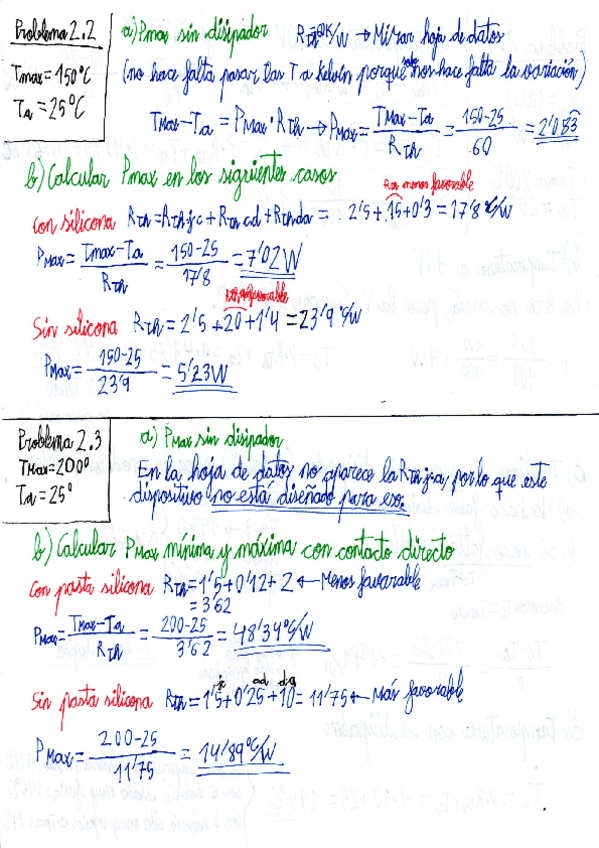 Problema 2.2
Tmax = 150ºC
Ta = 25ºC
a) Pmax sin disipador Rth=60K/W → Mirar hoja de datos
(no hace falta pasar las T a Kelvin porque solo nos hace falta la variación)
Tmax-Ta = Pmax·Rth → Pmax = (Tmax-Ta)/Rth = (150-25)/60 = 2'083
b) Calcular Pmax en los siguientes casos
Rth menos favorable
con silicona Rth = Rthjc + Rthcd + Rthda = 2'5 + 15 + 0'3 = 17'8 ºC/W
Pmax = (Tmax-Ta)/Rth = (150-25)/17'8 = 7'02W
Sin silicona Rth = 2'5 + 20 + 1'4 = 23'9 ºC/W
Pmax = (150-25)/23'9 = 5'23W
Problema 2.3
Tmax = 200º
Ta = 25º
a) Pmax sin disipador
En la hoja de datos no aparece la Rthj-a, por lo que este
dispositivo no está diseñado para eso.
b) Calcular Pmax mínina y máxima con contacto directo
Con pasta silicona Rth = 1'5 + 0'12 + 2 ← Menos favorable
= 3'62
Pmax = (Tmax-Ta)/Rth = (200-25)/3'62 = 48'34ºC/W
jc cd da
Sin pasta silicona Rth = 1'5 + 0'25 + 10 = 11'75 ← Más favorable
Pmax = (200-25)/11'75 = 14'89ºC/W